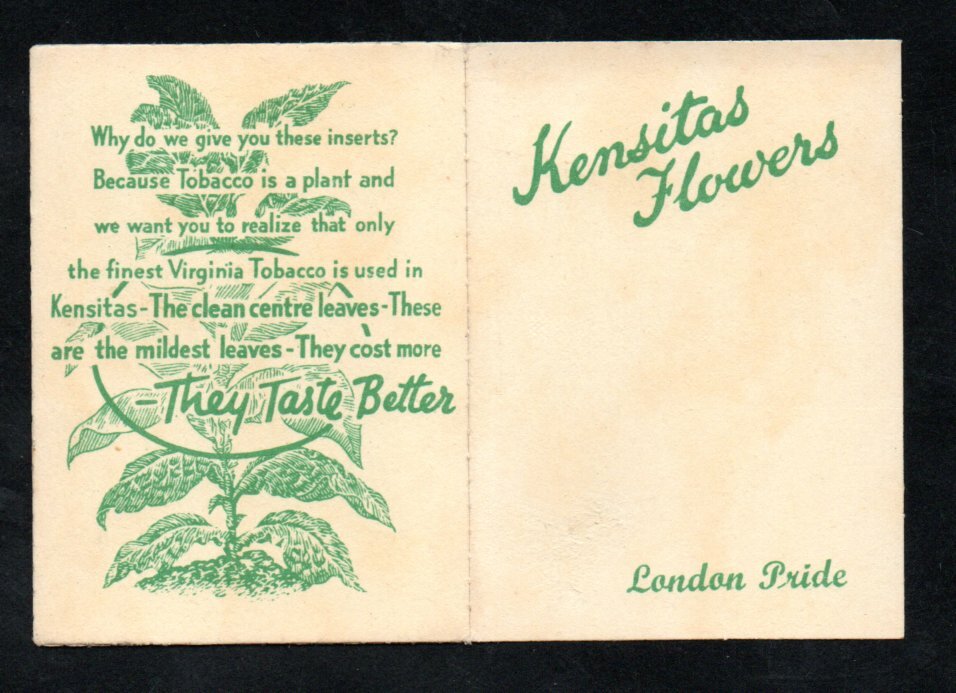 Why do we give you these inserts?
Because Tobacco is a plant and
we want you to realize that only
the finest Virginia Tobacco is used in
Kensitas-The clean centre leaves-These
are the mildest leaves-They cost more
-They Taste Better
Kensitas
Flowers
London Pride